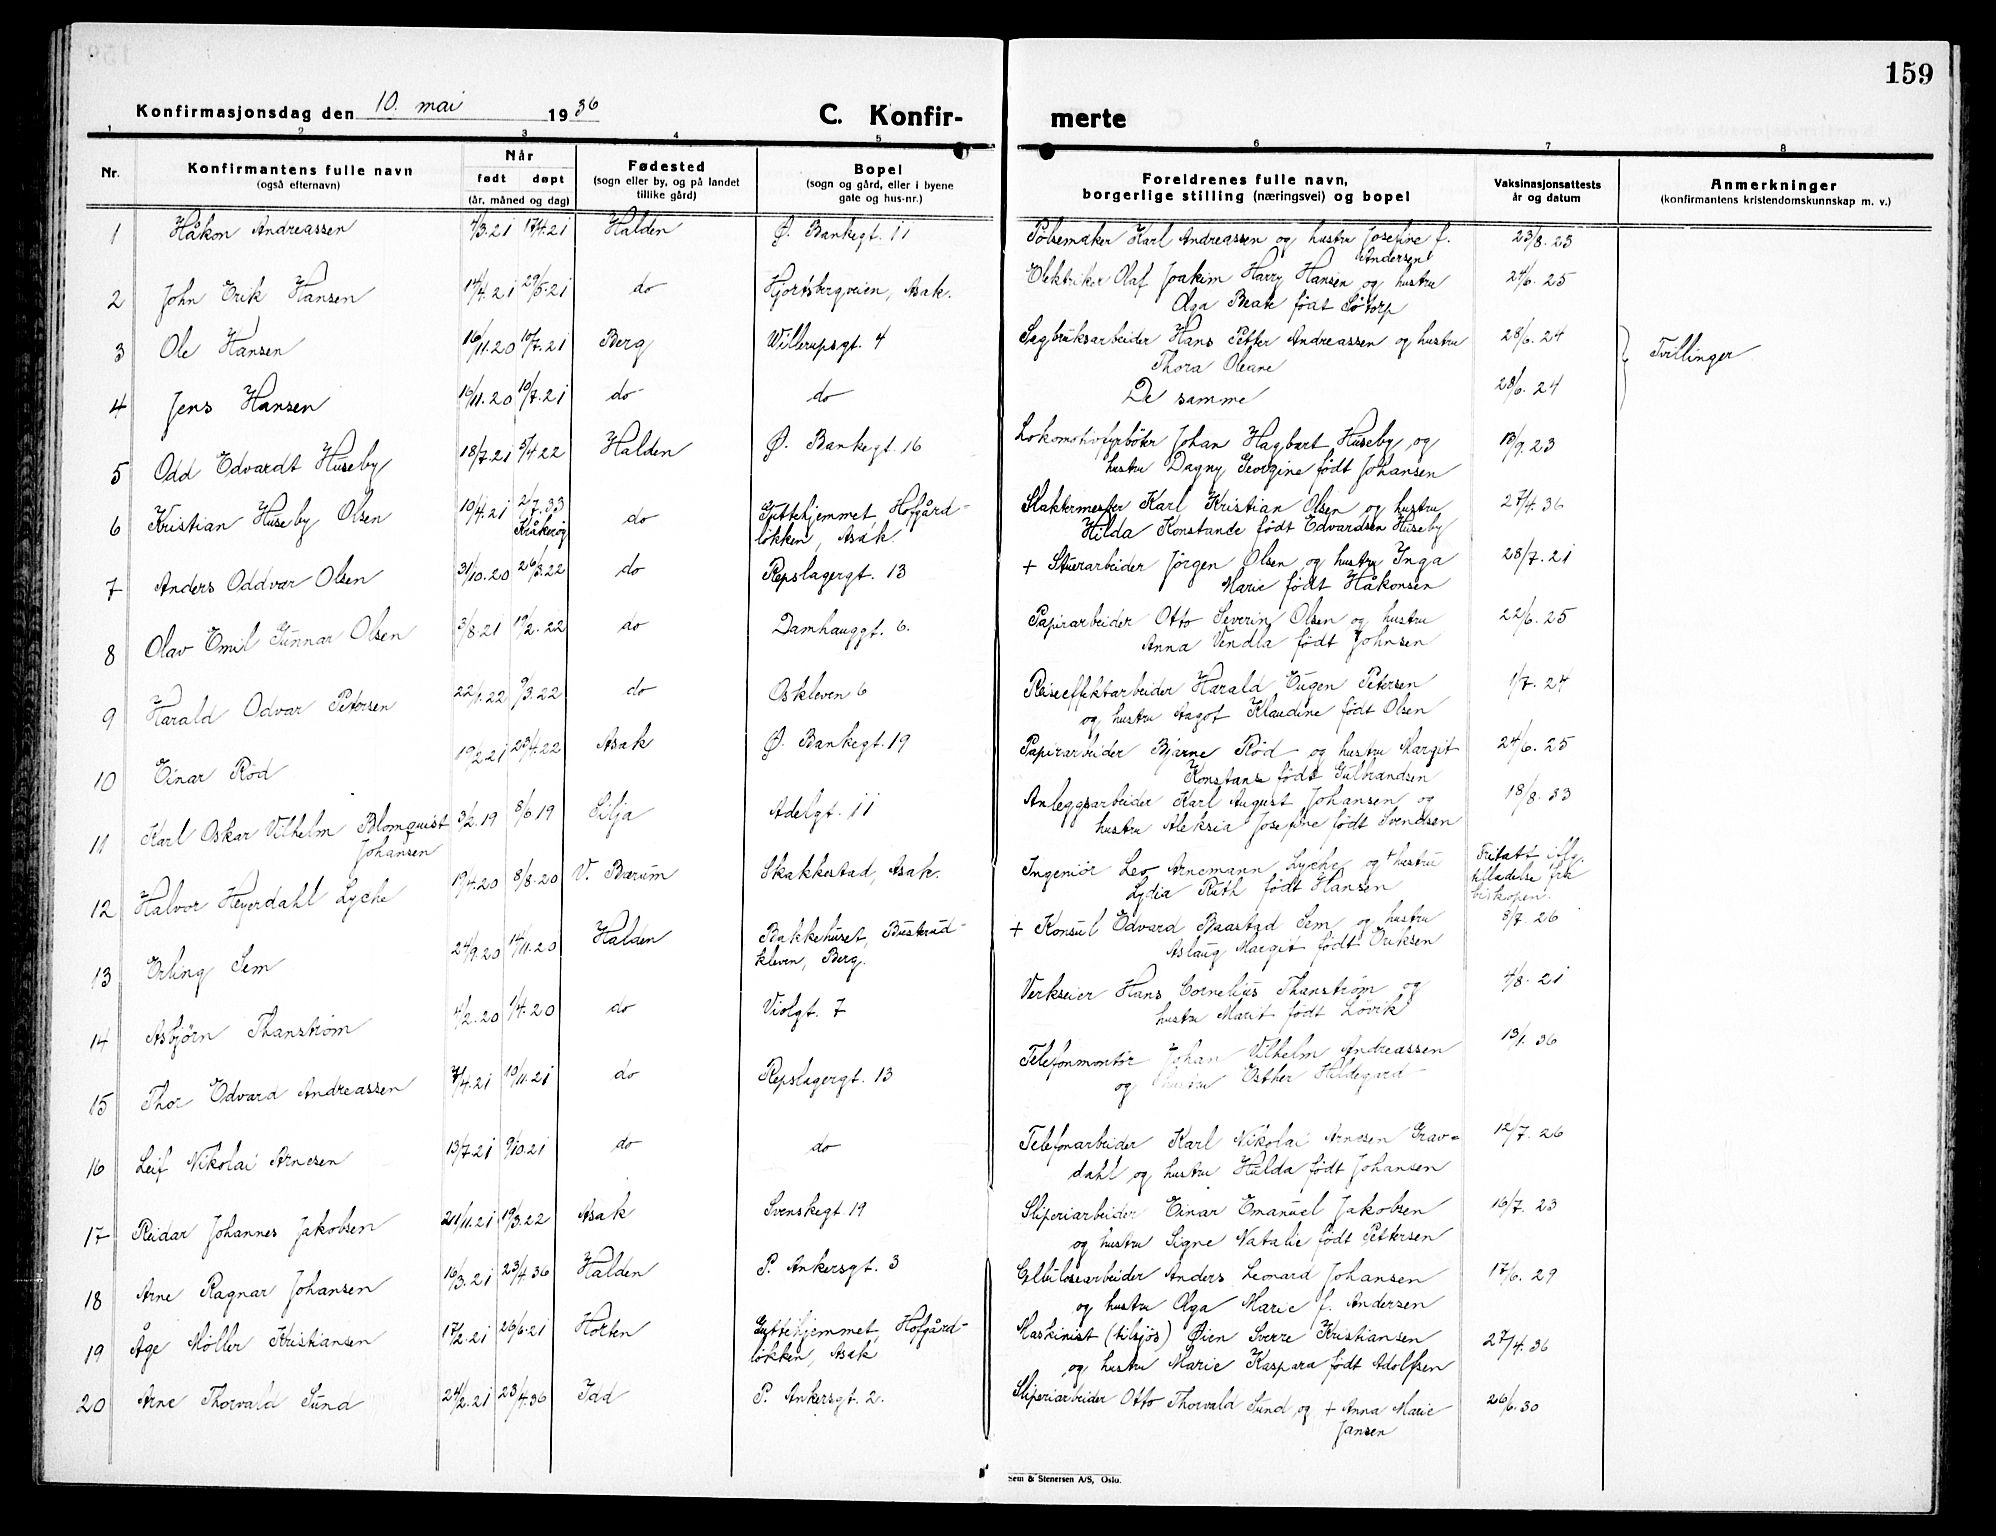 159
Konfirmasjonsdag den 10. mai 1936 C. Konfir- merte
1 2 3 4 5 6 7 8
Nr. Konfirmantens fulle navn (også efternavn) Når født døpt (år, måned og dag) Fødested (sogn eller by, og på landet tillike gård) Bopel (sogn og gård, eller i byene gate og hus-nr.) Foreldrenes fulle navn, borgerlige stilling (næringsvei) og bopel Vaksinasjonsattests år og datum Anmerkninger (konfirmantens kristendomskunnskap m. v.)
1 Håkon Andreassen /3.21 17/4.21 Halden Ø. Bankegt. 11 Pølsemaker Karl Andreassen og hustru Josefine f. 23/8.23
Andersen
2 John Erik Hansen 14/4.21 29/5.21 do Hjortsbergveien, Asak. Elektriker Olaf Joakim Harry Hansen og hustru 24/6.25
Olga Beate født Søtorp
3 Ole Hansen 16/11.20 10/7.21 Berg Willerupsgt. 4 Sagbruksarbeider Hans Petter Andreassen og hustru 28/6.24 } Tvillinger
Thora Oleane
4 Jens Hansen 16/11.20 10/7.21 do do De samme 28/6.24
5 Odd Edvardt Huseby 18/7.21 5/4.22 Halden Ø. Bankegt. 16 Lokomotivfyrbøter Johan Hagbart Huseby og 18/9.23
hustru Dagny Georgine født Johansen
6 Kristian Huseby Olsen 10/4.21 2/7.33 do Guttehjemmet, Hofgård- Slaktermester Karl Kristian Olsen og hustru 27/4.36
Kråkerøy løkken, Asak Hilda Konstande født Edvardsen Huseby
7 Anders Oddvar Olsen 31/10.20 26/3.22 do Repslagergt. 13 + Stuerarbeider Jørgen Olsen og hustru Inga 28/7.21
Marie født Håkonsen
8 Olav Emil Gunnar Olsen 3/8.21 19/2.22 do Damhauggt. 6. Papirarbeider Otto Severin Olsen og hustru 22/6.25
Anna Vendla født Johnsen
9 Harald Odvar Petersen 22/1.22 9/3.22 do Oskleven 6 Reiseeffektarbeider Harald Eugen Petersen 1/7.24
og hustru Aagot Klaudine født Olsen
10 Einar Rød 19/2.21 23/4.22 Asak Ø. Bankegt. 19 Papirarbeider Bjarne Rød og hustru Margit 24/6.25
Konstanse født Gulbrandsen
11 Karl Oskar Vilhelm Blomquist 3/2.19 8/6.19 Silja Adelgt. 11 Anleggsarbeider Karl August Johansen og 18/8.33
Johansen hustru Aleksia Josefine født Svendsen
12 Halvor Heyerdahl Lyche 19/4.20 8/8.20 V. Bærum Skakkestad, Asak. Ingeniør Leo Arnemann Lyche og + hustru Fritatt iflg.
Lydia Ruth født Hansen tilladelse fra
biskopen.
13 Erling Sem 24/9.20 14/11.20 Halden Bakkehuset, Buskrud- + Konsul Edvard Baastad Sem og hustru 8/7.26
kleven, Berg. Aslaug Margit født Eriksen
14 Asbjørn Thanstrøm /2.20 1/4.20 do Violgt. 7 Verkseier Hans Cornelius Thanstrøm og 4/8.21
hustru Marit født Løvik
15 Thor Edvard Andreassen /4.21 10/11.21 do Repslagergt. 13 Telefonmontør Johan Vilhelm Andreassen 13/1.36
og hustru Esther Hildegard
16 Leif Nikolai Arnesen 13/7.21 9/10.21 do do Telefonarbeider Karl Nikolai Arnesen Grav= 12/7.26
dahl og hustru Hilda født Johansen
17 Reidar Johannes Jakobsen 21/11.21 19/3.22 Asak Svenskegt 19 Sliperiarbeider Einar Emanuel Jakobsen 16/7.23
og hustru Signe Natalie født Pettersen
18 Arne Ragnar Johansen 16/3.21 23/4.36 Halden P. Ankersgt. 3 Cellulosearbeider Anders Leonard Johansen 17/6.29
og hustru Olga Marie f. Andersen
19 Åge Møller Kristiansen 17/2.21 26/6.21 Horten Guttehjemmet, Hofgård- Maskinist (tilsjøs) Øien Sverre Kristiansen 27/4.36
løkken, Asak og hustru Marie Kaspara født Adolfsen
20 Arne Thorvald Sund 24/2.21 23/4.36 Idd P. Ankersgt. 2. Sliperiarbeider Otto Thorvald Sund og + Anna Marie 26/6.30
Jansen
Sem & Stenersen A/S, Oslo.